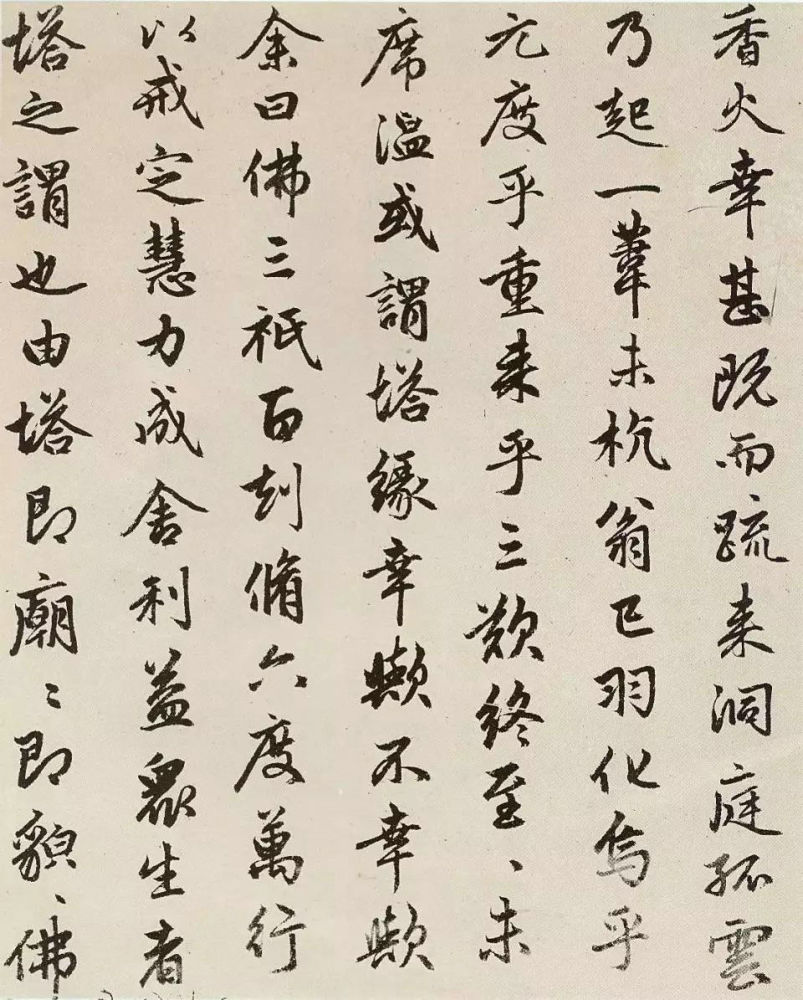 香火幸甚既而疏来洞庭孤雲
乃起一葦未杭翁已羽化焉乎
元度乎重来乎三歎終至、未
席温或謂塔緣幸歟不幸歟
余曰佛三祇百刧脩六度萬行
以戒定慧力成舍利益衆生者
塔之謂也由塔即廟〻即貌、佛